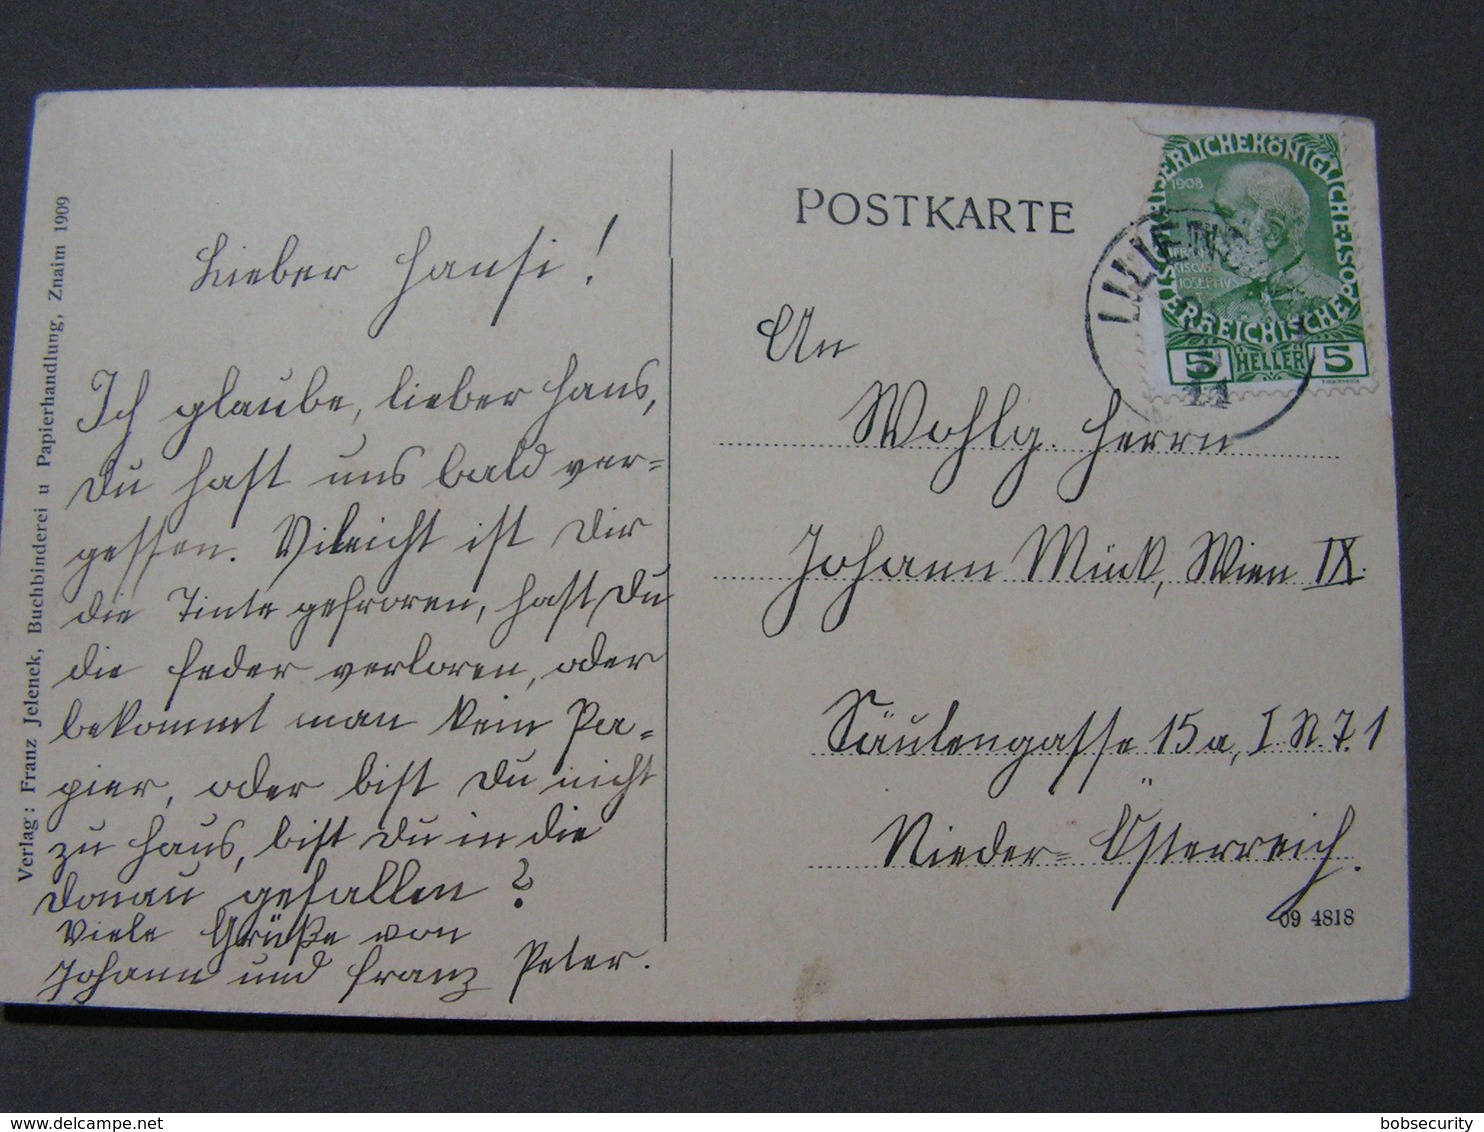 Verlag: Franz Jelenek, Buchbinderei u Papierhandlung, Znaim 1909
Lieber Hansi!
Ich glaube, lieber Hans,
Du hast uns bald ver=
gessen. Vileicht ist Dir
die Tinte gefroren, hast Du
die Feder verloren, oder
bekommt man kein Pa=
pier, oder bist Du nicht
zu Haus, bist Du in die
Donau gefallen?
Viele Grüße von
Johann und Franz Peter.
POSTKARTE
KAISERLICHE KÖNIGLICHE ÖSTERREICHISCHE POST
1908
FRAN
CISCUS
IOSEPHVS
5 HELLER 5
An
Wohlg. Herrn
Johann Mück, Wien IX.
Säulengasse 15a, I. St. T. 1
Nieder=Österreich.
09 4818
bobsecurity